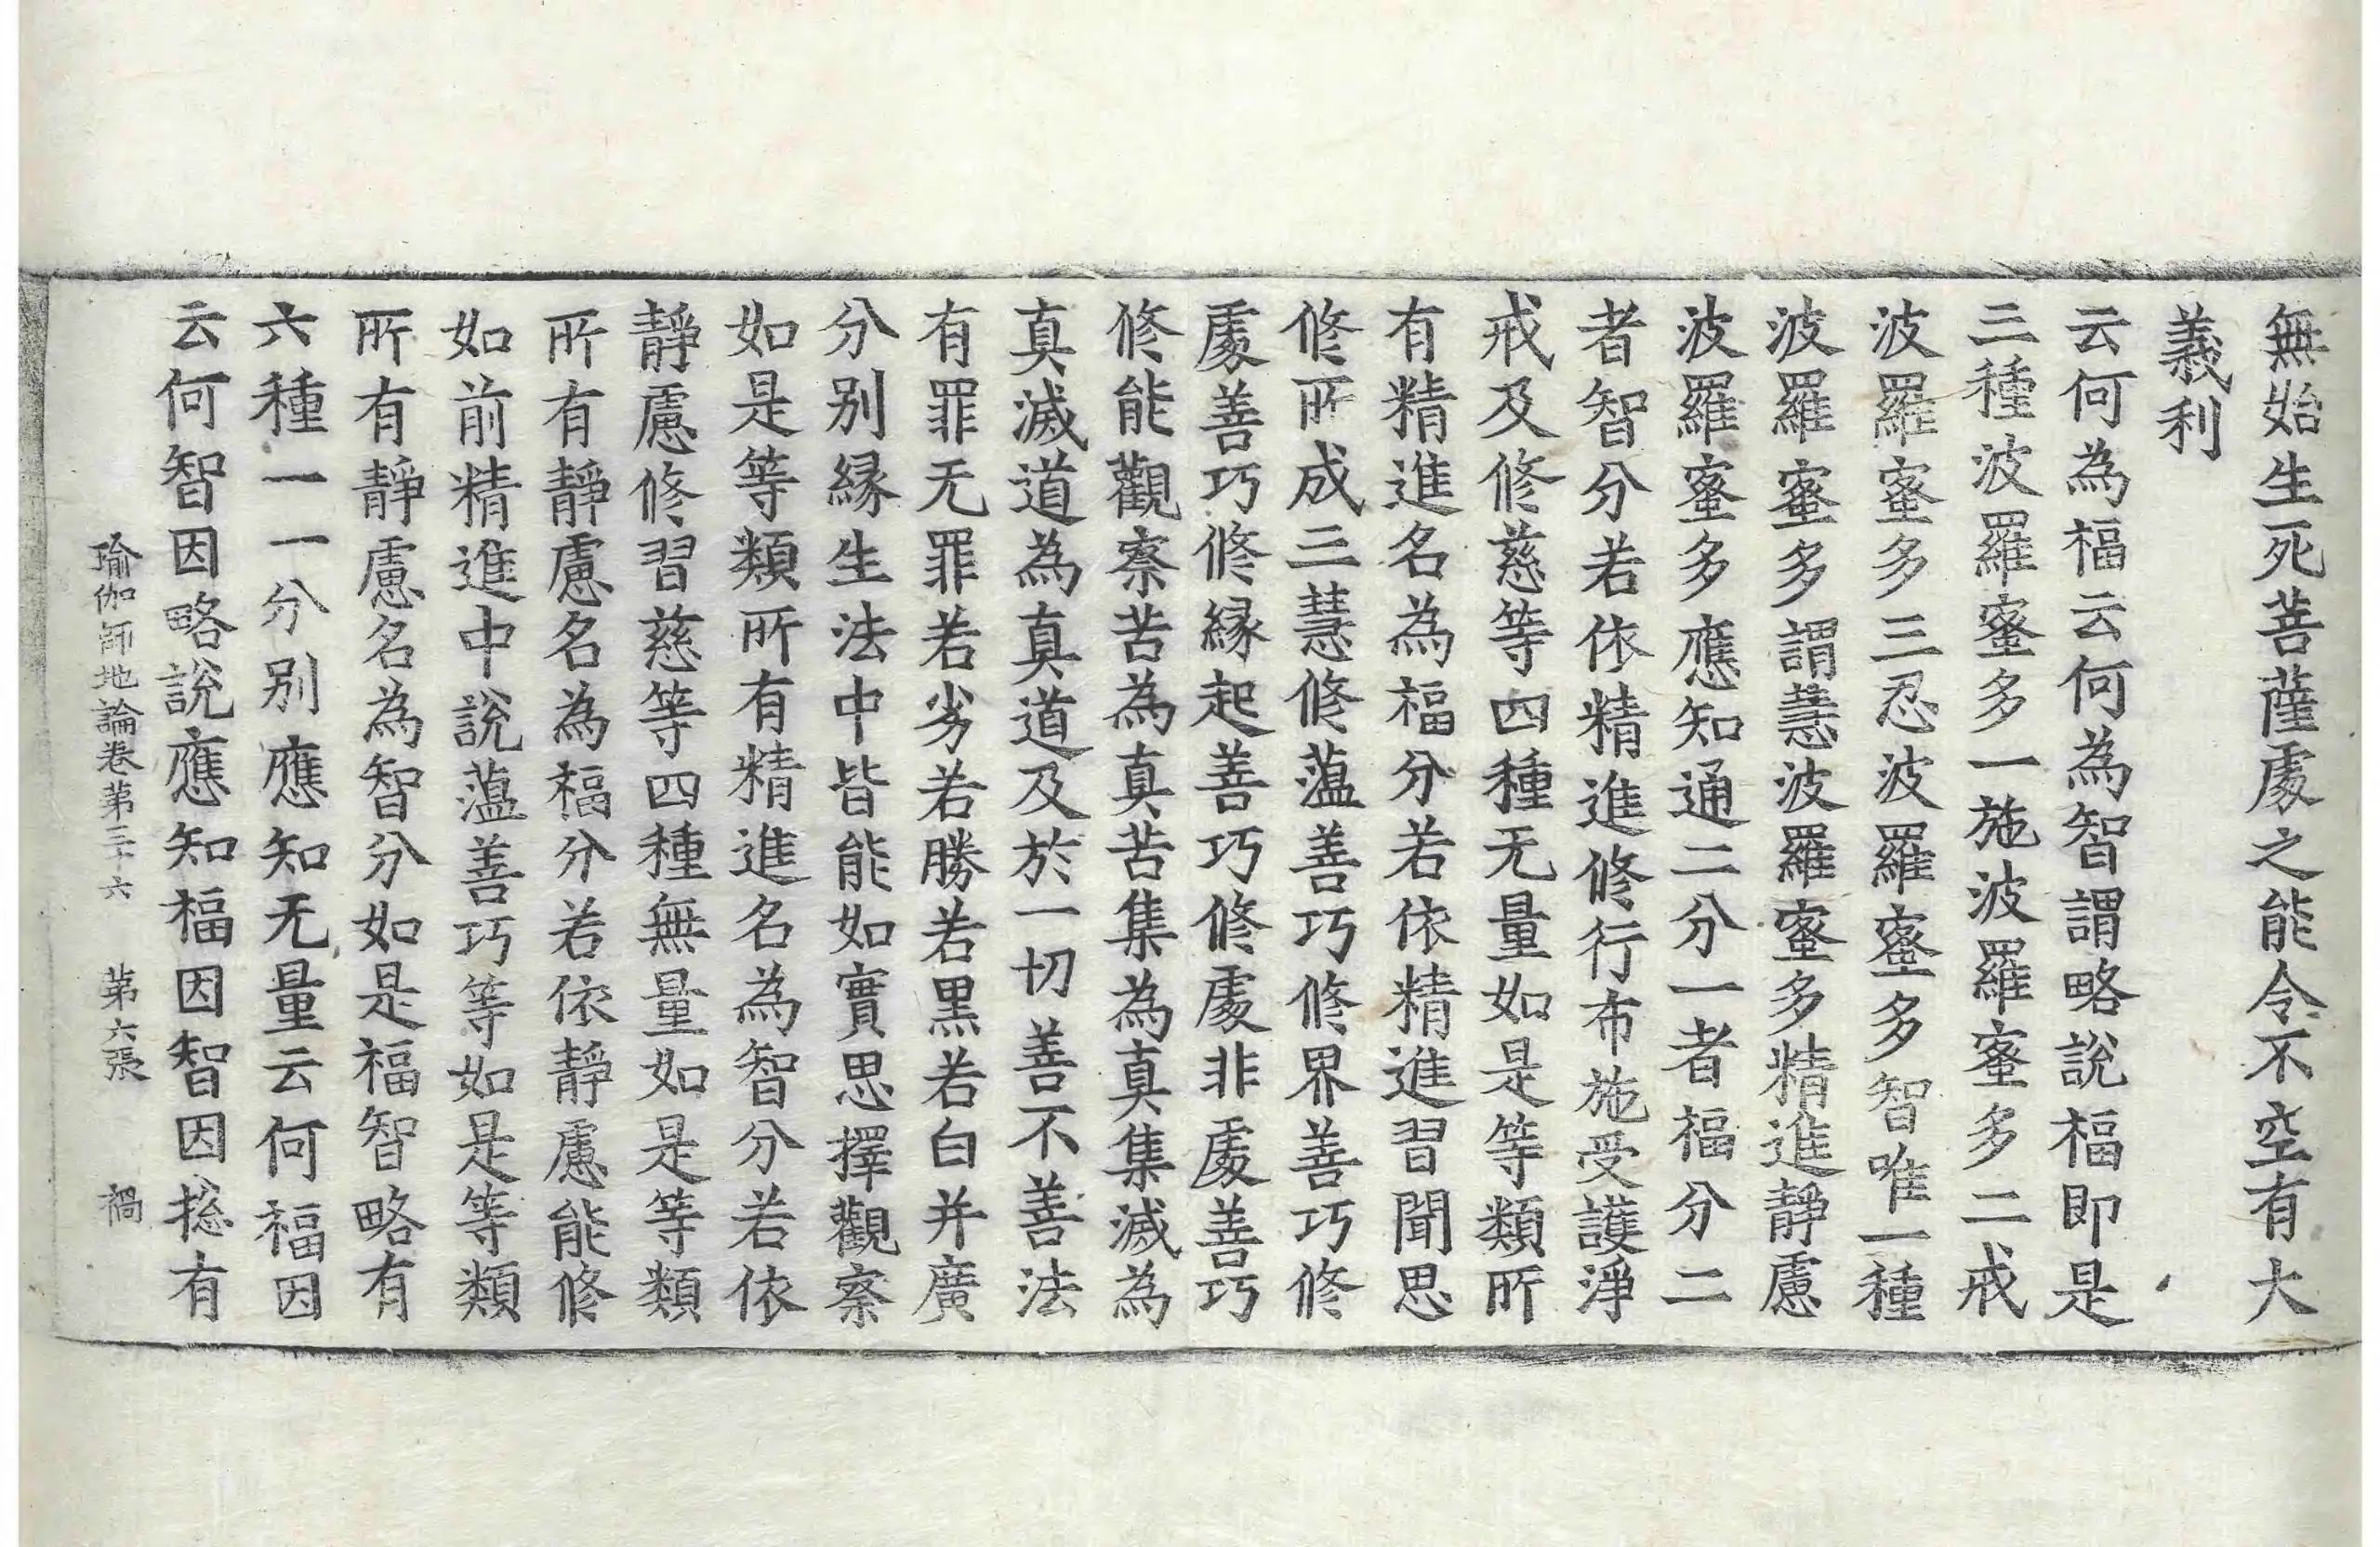 無始生死菩薩處之能令不空有大
義利
云何為福云何為智謂略說福即是
三種波羅蜜多一施波羅蜜多二戒
波羅蜜多三忍波羅蜜多智唯一種
波羅蜜多謂慧波羅蜜多精進靜慮
波羅蜜多應知通二分一者福分二
者智分若依精進修行布施受護淨
戒及修慈等四種无量如是等類所
有精進名為福分若依精進習聞思
修所成三慧修蕰善巧修界善巧修
處善巧修縁起善巧修處非處善巧
修能觀察苦為真苦集為真集滅為
真滅道為真道及於一切善不善法
有罪无罪若劣若勝若黒若白并廣
分別縁生法中皆能如實思擇觀察
如是等類所有精進名為智分若依
靜慮修習慈等四種無量如是等類
所有靜慮名為福分若依靜慮能修
如前精進中說蕰善巧等如是等類
所有靜慮名為智分如是福智略有
六種一一分別應知无量云何福因
云何智因略說應知福因智因捴有
瑜伽師地論卷第三十六 第六張 禍